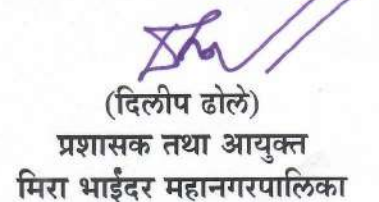 (दिलीप ढोले)
प्रशासक तथा आयुक्त
मिरा भाईंदर महानगरपालिका